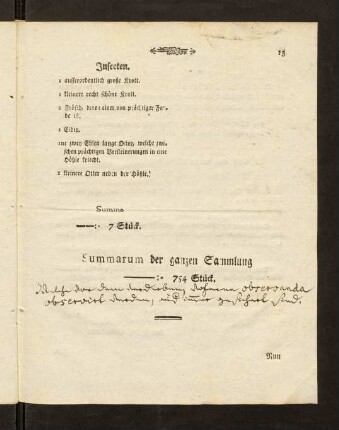 15
Insecten.
1 ausserordentlich große Krott.
1 kleinere recht schöne Krott.
2 Frösch, deren einer von prächtiger Far-
be ist.
1 Eidex.
eine zwey Ellen lange Otter, welche zwi-
schen prächtigen Versteinerungen in eine
Höhle kriecht.
1 kleinere Otter neben der Höhle.
Summa
——: 7 Stück.
Summarum der ganzen Sammlung
——: 754 Stück.
observanda
observirt werden, und
Nun